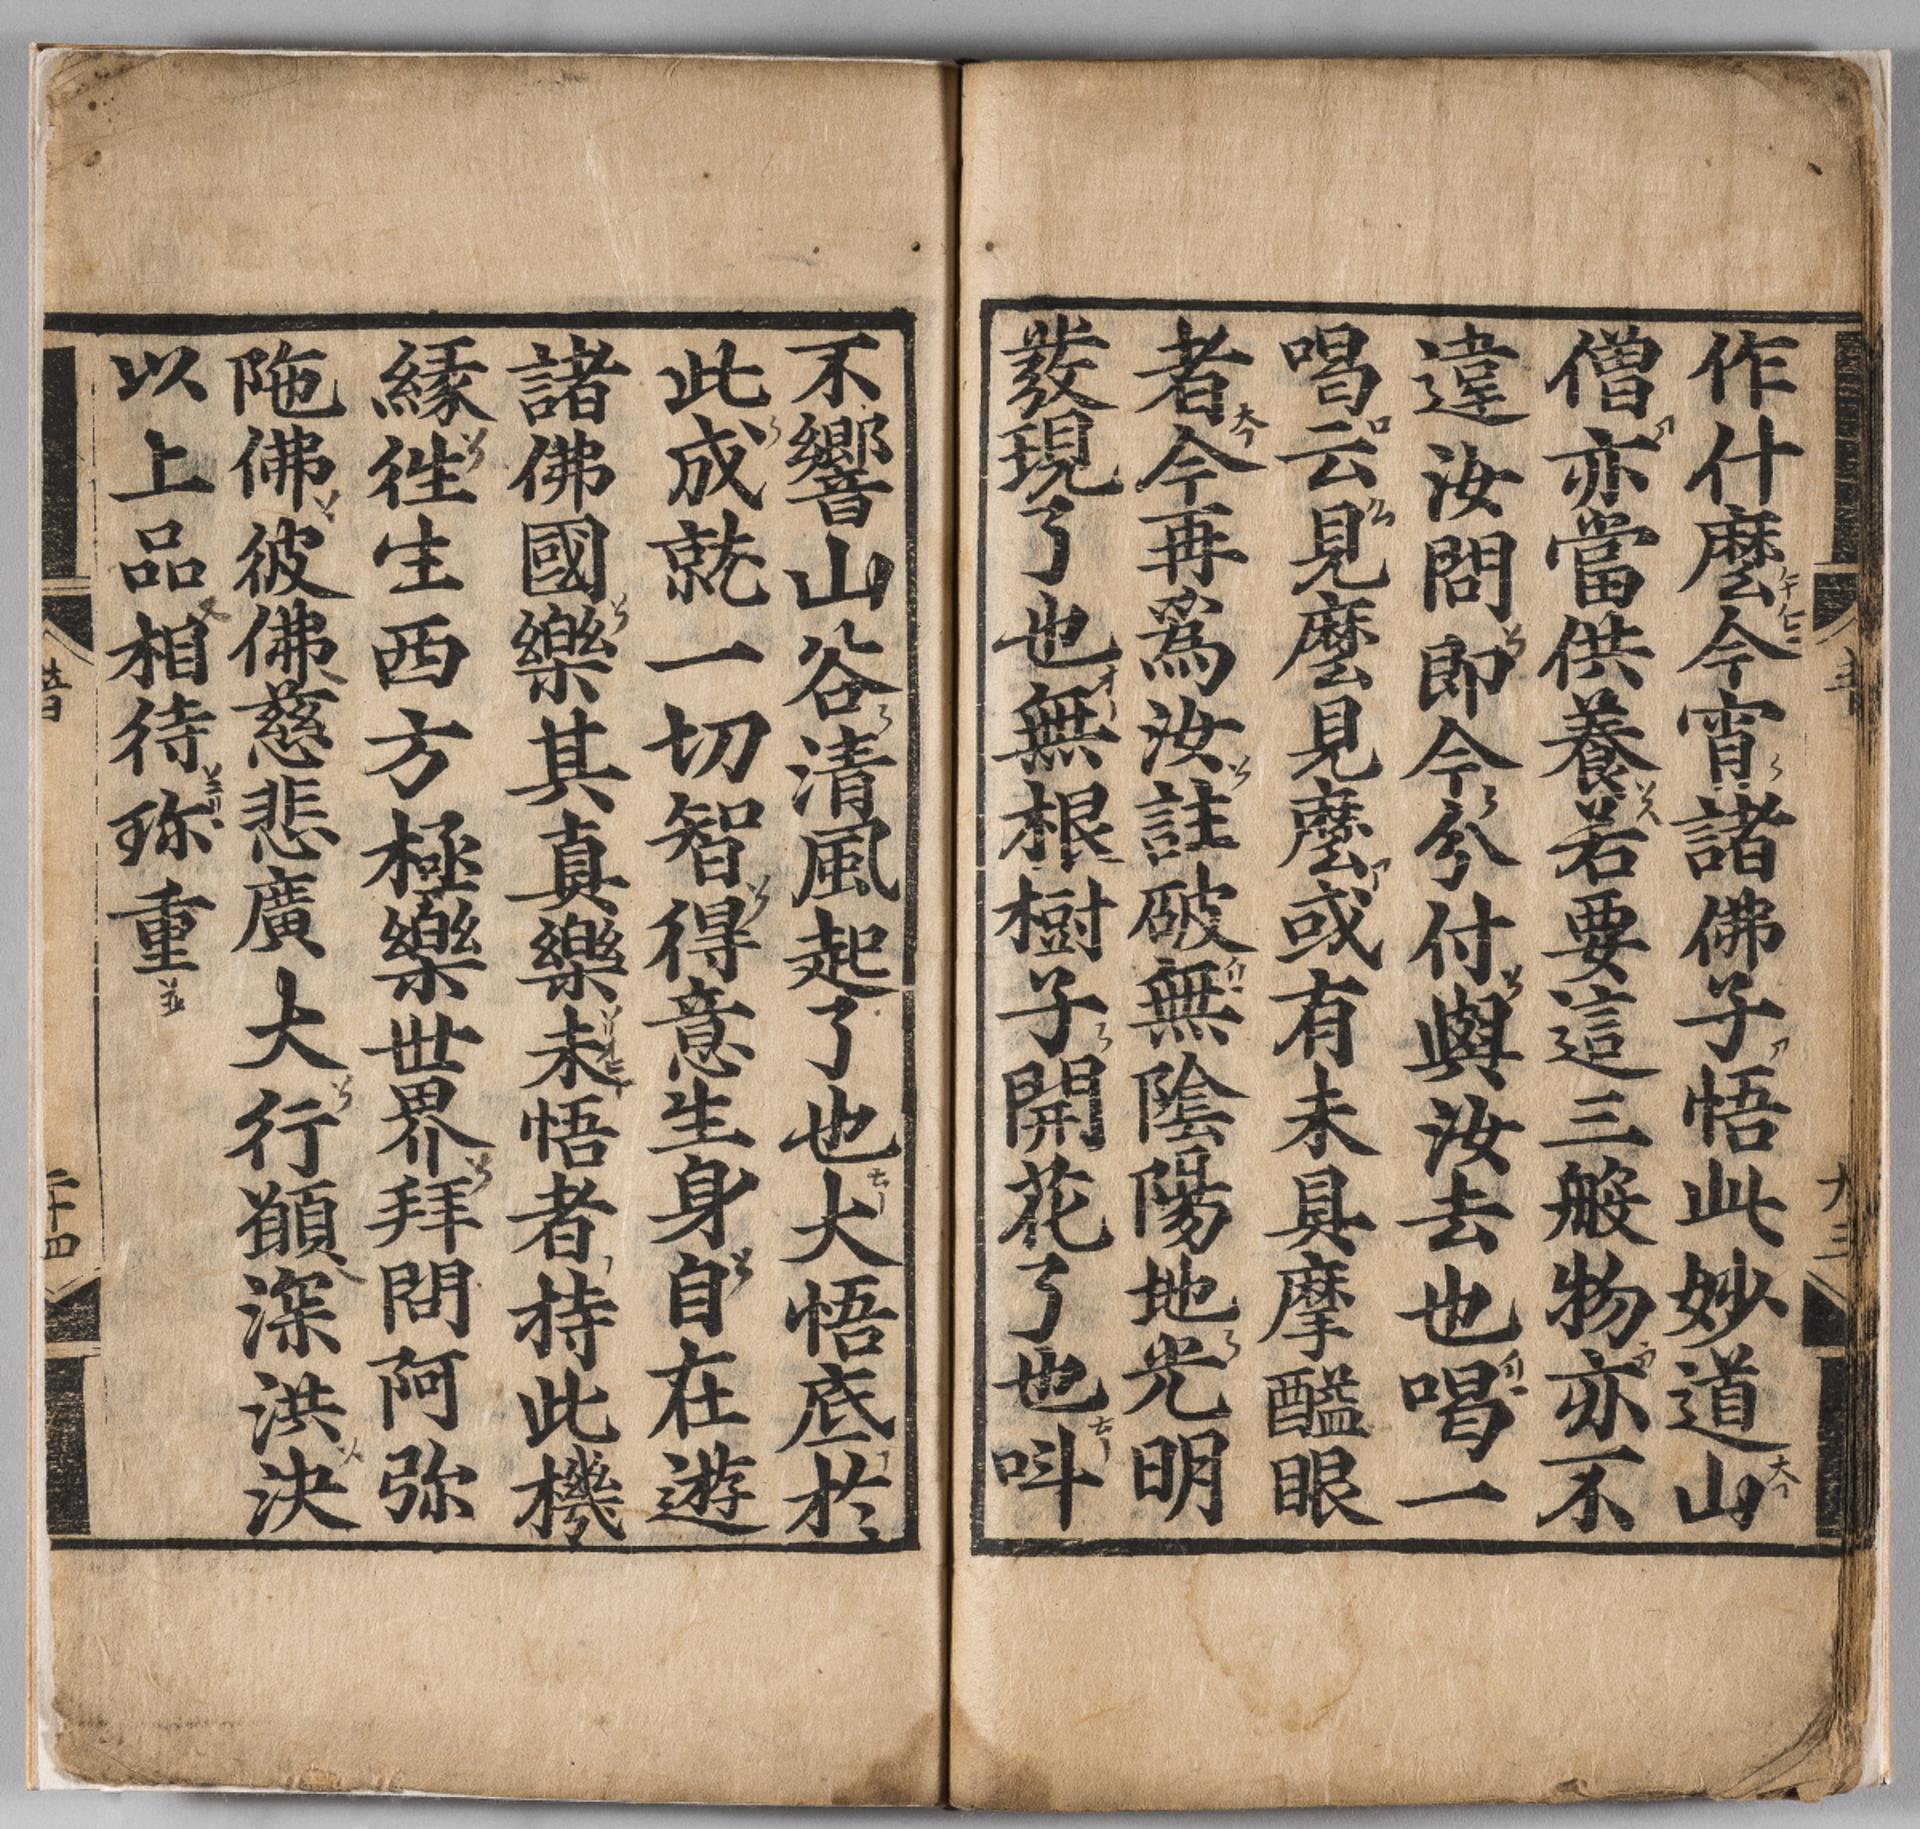 作什麽今宵諸佛子悟此妙道山
僧亦當供養若要這三般物亦不
違汝問即今分付與汝去也喝一
喝云見麽見麽或有未具摩醯眼
者今再爲汝註破無陰陽地光明
發現了也無根樹子開花了也呌
不響山谷清風起了也大悟底於
此成就一切智得意生身自在遊
諸佛國樂其真樂未悟者持此機
緣徃生西方極樂世界拜問阿弥
陁佛彼佛慈悲廣大行願深洪决
以上品相待珎重
二十四